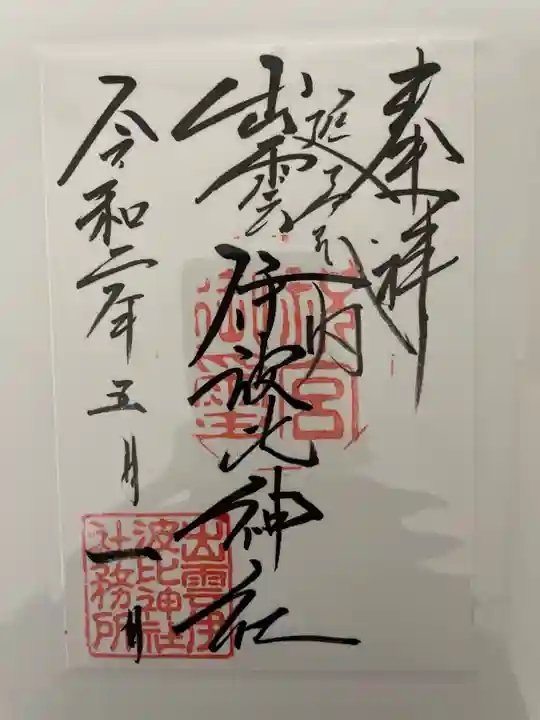 奉拝
延喜式内
出雲伊波比神社
令和二年五月一日
宮
御璽
出雲伊
波比神社
社務所